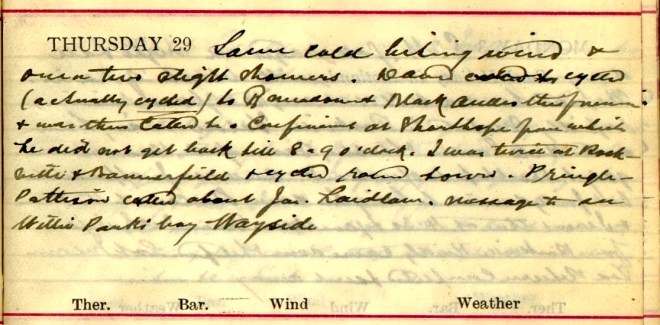 THURSDAY 29 Same cold biting wind &
one or two slight showers. David cycled
(actually cycled) to & Black Andro this forenoon
& was then called to a confinement at which
he did not get back till 8-9 o'clock. I was twice at
& Bannerfield & cycled round town. Pringle-
Pattison called about Jas. Laidlaw. Message to see
Willie Park's boy Wayside
Ther. Bar. Wind Weather